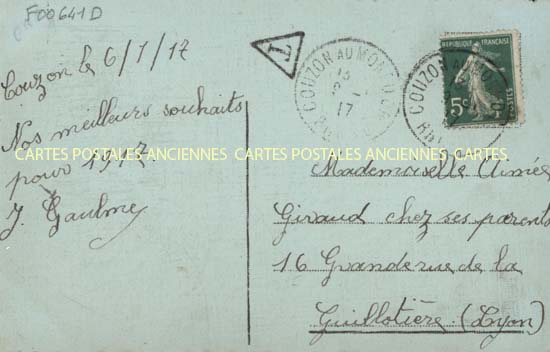 F00641D
Couzon le 6/1/17
Nos meilleurs souhaits
pour 1917
J. Gaulme
T
COUZON AU MONT D'OR
17
RHÔNE
COUZON AU MONT D'OR
RHÔNE
REPUBLIQUE FRANÇAISE
5c
POSTES
CARTES POSTALES ANCIENNES CARTES POSTALES ANCIENNES CARTES
Mademoiselle Aimée
Giraud chez ses parents
16 Grande rue de la
Guillotière (Lyon)